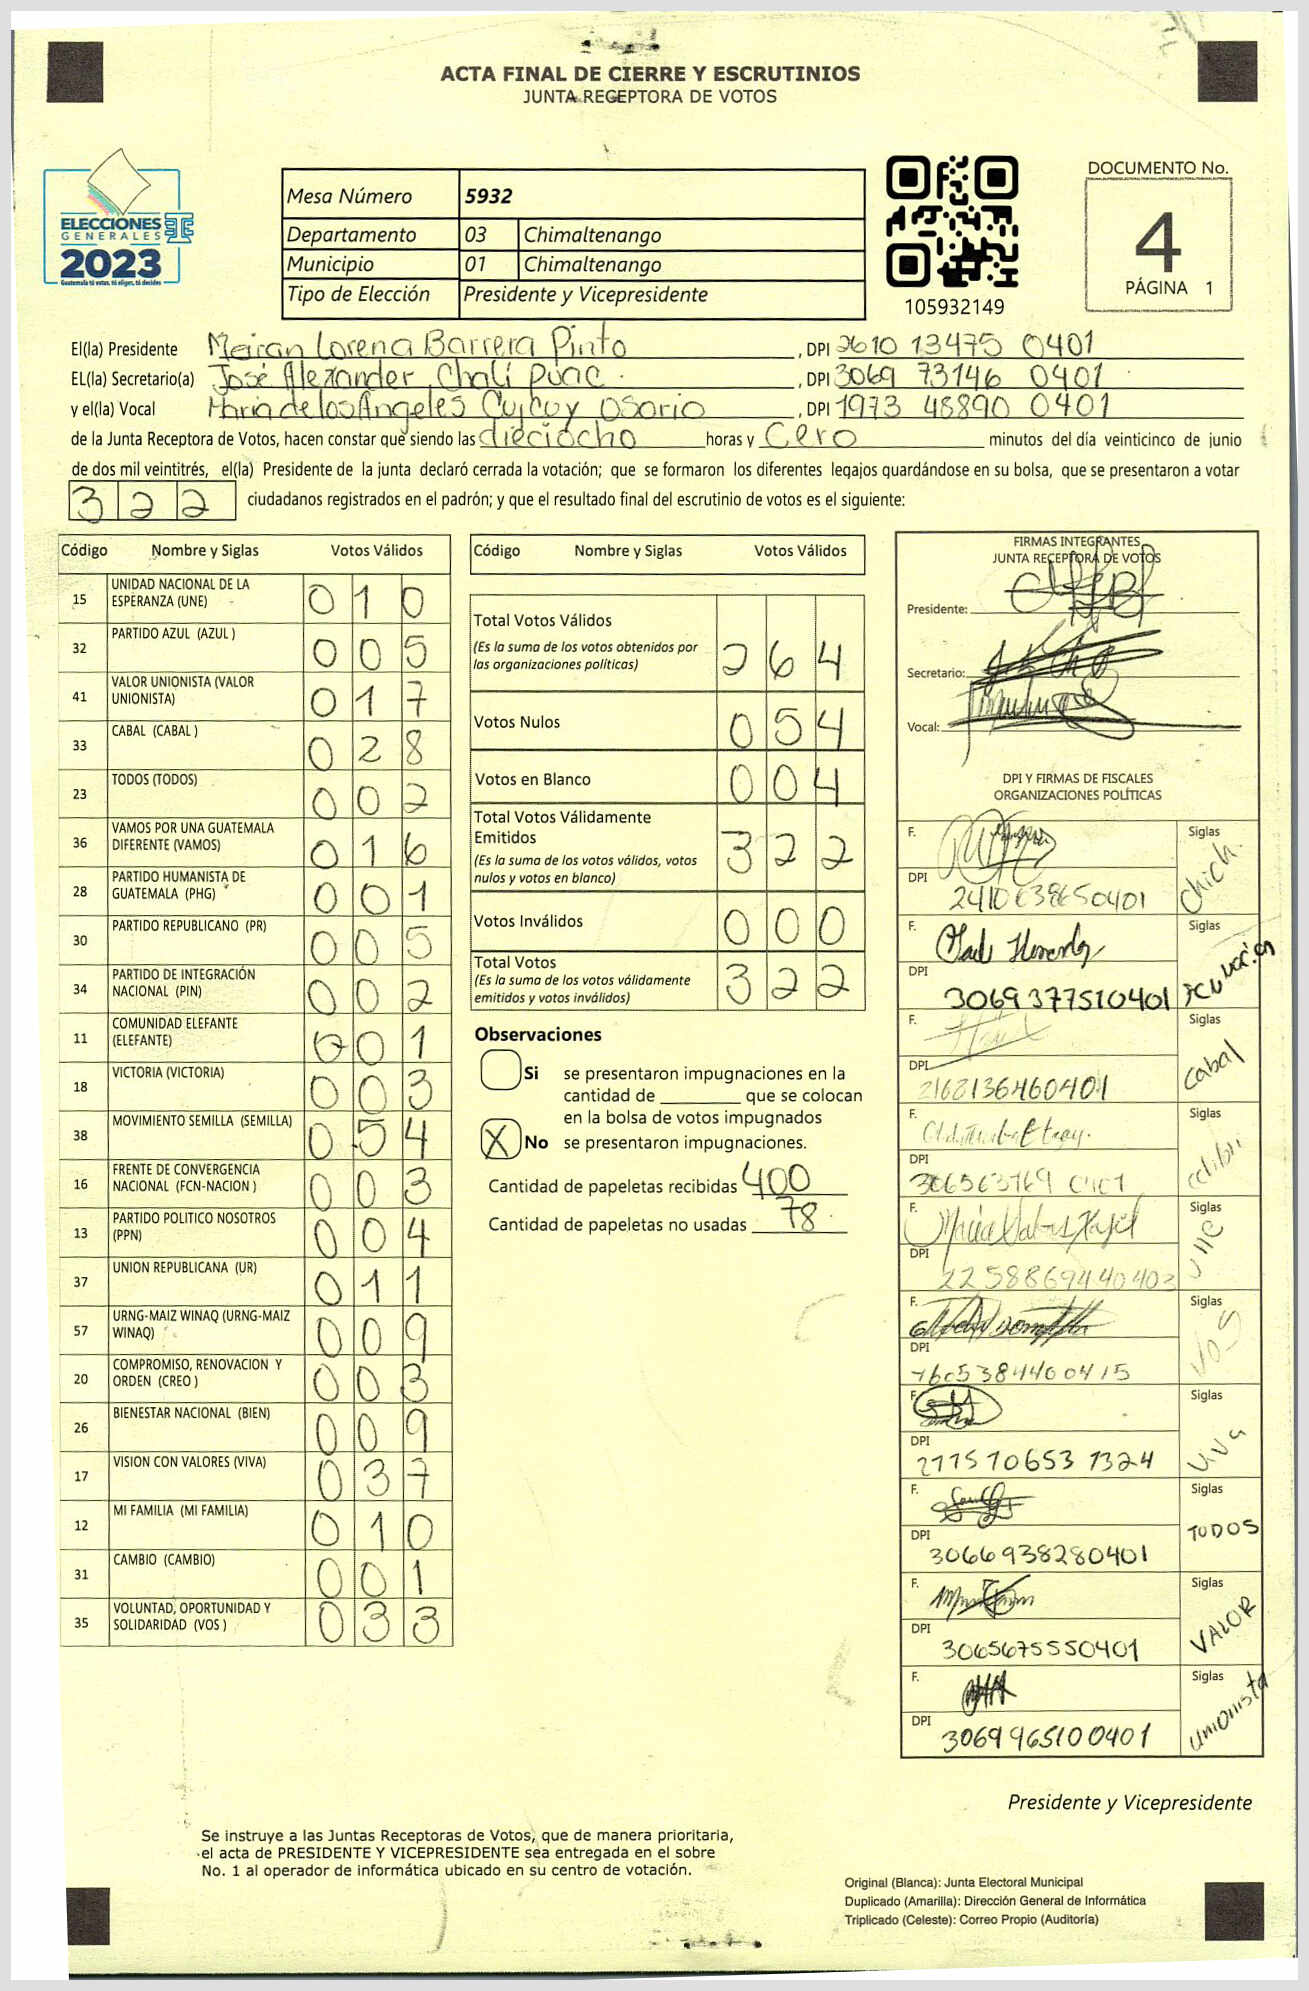 ACTA FINAL DE CIERRE Y ESCRUTINIOS
JUNTA RECEPTORA DE VOTOS
ELECCIONES
GENERALES
2023
Guatemala tú votas, tú eliges, tú decides
Mesa Número 5932
Departamento 03 Chimaltenango
Municipio 01 Chimaltenango
Tipo de Elección Presidente y Vicepresidente
105932149
DOCUMENTO No.
4
PÁGINA 1
El(la) Presidente Meiran Lorena Barrera Pinto, DPI 2610 13475 0401
EL(la) Secretario(a) José Alexander Chalí Puac, DPI 3069 73146 0401
y el(la) Vocal Maria de los Angeles Cujcuy Osorio, DPI 1973 48890 0401
de la Junta Receptora de Votos, hacen constar que siendo las dieciocho horas y Cero minutos del día veinticinco de junio
de dos mil veintitrés, el(la) Presidente de la junta declaró cerrada la votación; que se formaron los diferentes legajos guardándose en su bolsa, que se presentaron a votar
322 ciudadanos registrados en el padrón; y que el resultado final del escrutinio de votos es el siguiente:
Código Nombre y Siglas Votos Válidos
15 UNIDAD NACIONAL DE LA ESPERANZA (UNE) 010
32 PARTIDO AZUL (AZUL ) 005
41 VALOR UNIONISTA (VALOR UNIONISTA) 017
33 CABAL (CABAL ) 028
23 TODOS (TODOS) 002
36 VAMOS POR UNA GUATEMALA DIFERENTE (VAMOS) 016
28 PARTIDO HUMANISTA DE GUATEMALA (PHG) 001
30 PARTIDO REPUBLICANO (PR) 005
34 PARTIDO DE INTEGRACIÓN NACIONAL (PIN) 002
11 COMUNIDAD ELEFANTE (ELEFANTE) 001
18 VICTORIA (VICTORIA) 003
38 MOVIMIENTO SEMILLA (SEMILLA) 054
16 FRENTE DE CONVERGENCIA NACIONAL (FCN-NACION ) 003
13 PARTIDO POLITICO NOSOTROS (PPN) 004
37 UNION REPUBLICANA (UR) 011
57 URNG-MAIZ WINAQ (URNG-MAIZ WINAQ) 009
20 COMPROMISO, RENOVACION Y ORDEN (CREO ) 003
26 BIENESTAR NACIONAL (BIEN) 009
17 VISION CON VALORES (VIVA) 037
12 MI FAMILIA (MI FAMILIA) 010
31 CAMBIO (CAMBIO) 001
35 VOLUNTAD, OPORTUNIDAD Y SOLIDARIDAD (VOS ) 033
Código Nombre y Siglas Votos Válidos
Total Votos Válidos 264
(Es la suma de los votos obtenidos por
las organizaciones políticas)
Votos Nulos 054
Votos en Blanco 004
Total Votos Válidamente
Emitidos 322
(Es la suma de los votos válidos, votos
nulos y votos en blanco)
Votos Inválidos 000
Total Votos 322
(Es la suma de los votos válidamente
emitidos y votos inválidos)
Observaciones
Si se presentaron impugnaciones en la
cantidad de ________ que se colocan
en la bolsa de votos impugnados
X No se presentaron impugnaciones.
Cantidad de papeletas recibidas 400
Cantidad de papeletas no usadas 78
FIRMAS INTEGRANTES
JUNTA RECEPTORA DE VOTOS
Presidente:
Secretario:
Vocal:
DPI Y FIRMAS DE FISCALES
ORGANIZACIONES POLÍTICAS
F. Siglas
DPI
F. Siglas
DPI 3069377510401
F. Siglas Cabal
DPI 2168136460401
F. Siglas
DPI
F. Siglas UNE
DPI 2258869440403
F. Siglas VOS
DPI
F. Siglas Viva
DPI
F. Siglas TODOS
DPI 3066938280401
F. Siglas VALOR
DPI 3065675550401
F. Siglas Unionista
DPI 3069965100401
Presidente y Vicepresidente
Se instruye a las Juntas Receptoras de Votos, que de manera prioritaria,
el acta de PRESIDENTE Y VICEPRESIDENTE sea entregada en el sobre
No. 1 al operador de informática ubicado en su centro de votación.
Original (Blanca): Junta Electoral Municipal
Duplicado (Amarilla): Dirección General de Informática
Triplicado (Celeste): Correo Propio (Auditoría)